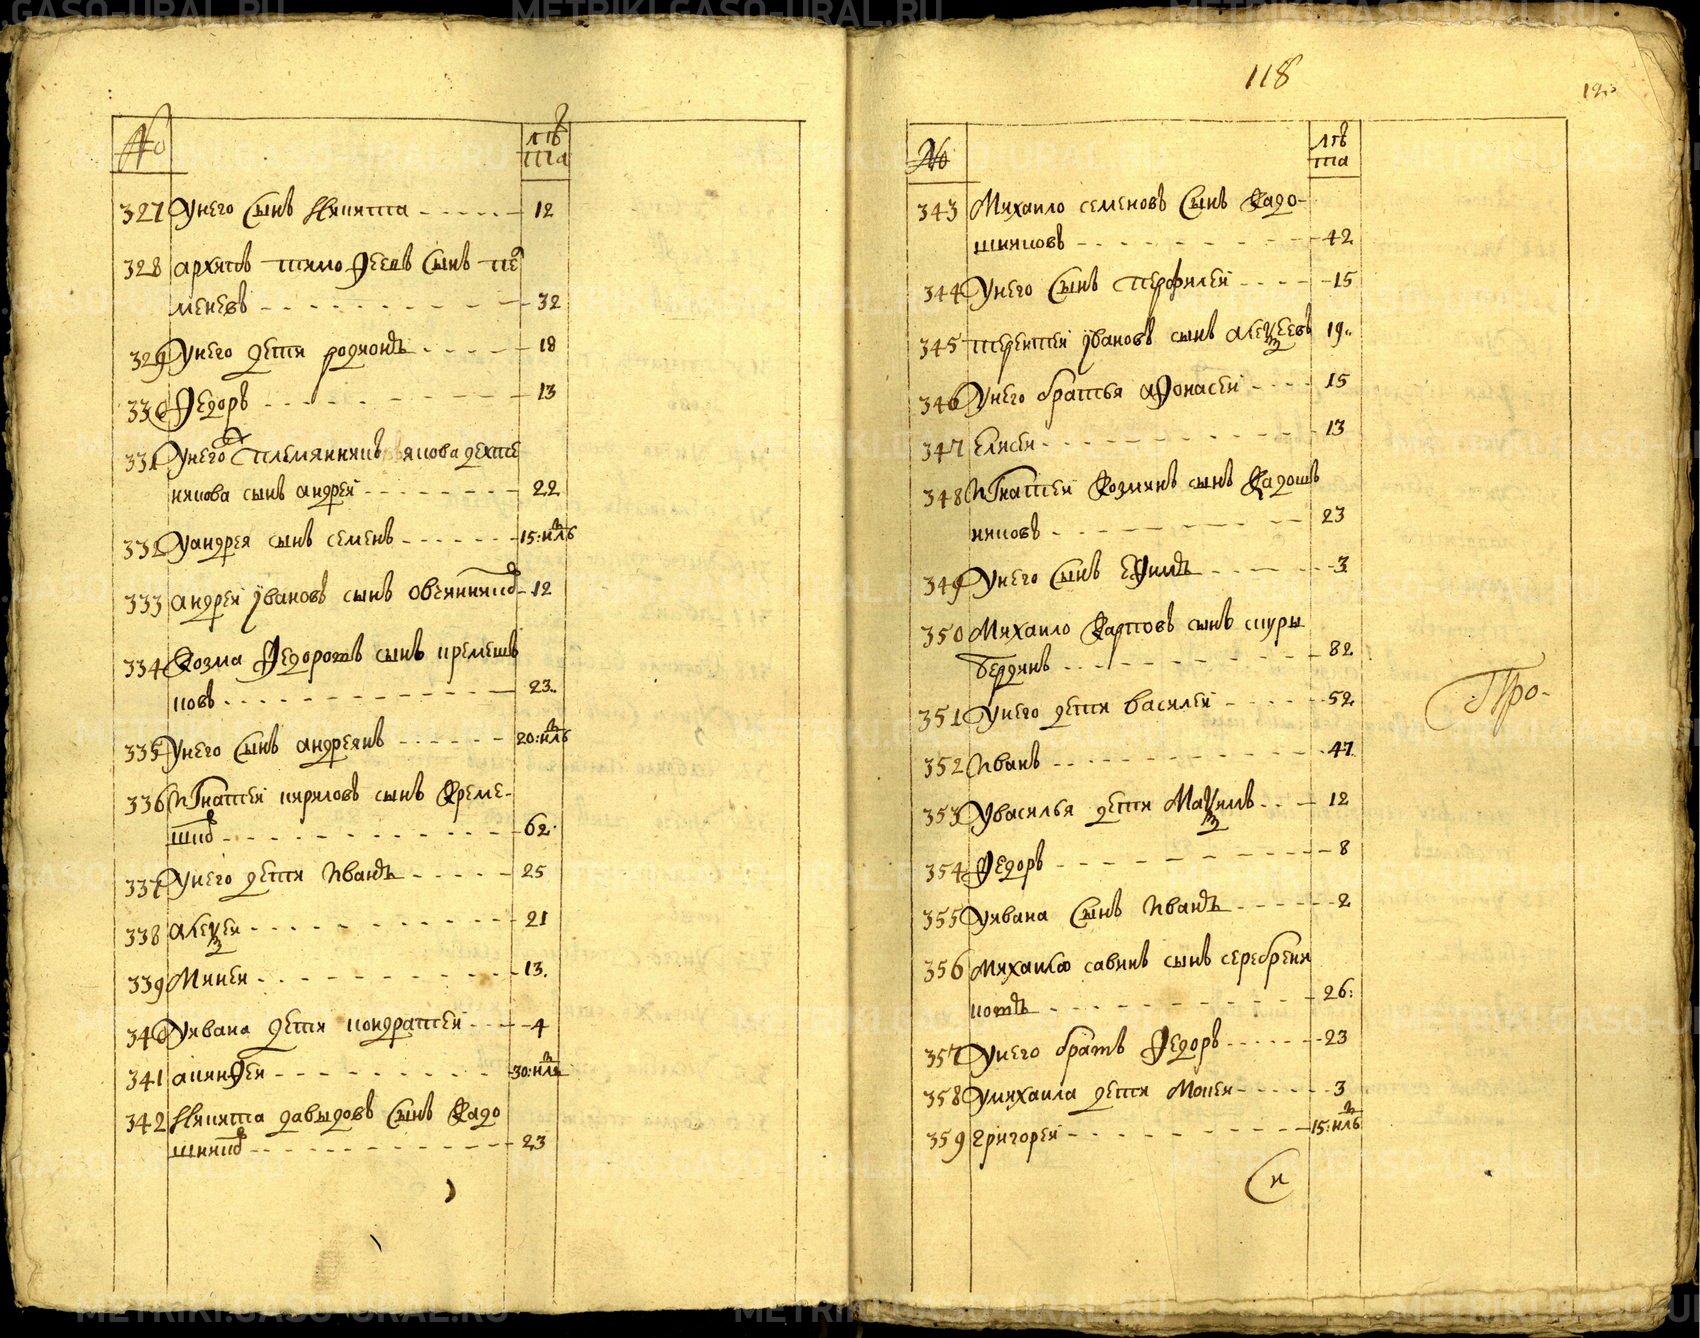 №
лѣ
та
327 У него сынъ Никита - - - - - 12
328 архипъ тимоѳеевъ сынъ пе
меневъ - - - - - - - - - 32
329 У него дети родионъ - - - - 18
330 Ѳедоръ - - - - - - - - - 13
331 У него племянникъ якова дехте
никова сынъ андрей - - - - - - - 22
332 У андрея сынъ семенъ - - - - - - 15: нѣль
333 андрей Ивановъ сынъ овсянников - 12
334 Козма Ѳедоротъ сынъ кремешъ
ковъ - - - - - - - - - - - 23..
335 У него сынъ андреянъ - - - - - - 20: нѣль
336 Игнатей кириловъ сынъ Креме-
шко - - - - - - - - - - - 62.
337 У него дети Иванъ - - - - - 25
338 алеѯей - - - - - - - - - - 21
339 Миней - - - - - - - - - - - 13.
340 У ивана дети кондратей - - - - 4
341 аникѳей - - - - - - - - - - 30: нѣль
342 Никита давыдовъ сынъ Кадо
шников - - - - - - - - - - - 23
118
№
лѣ
та
343 Михаило семеновъ сынъ Кадо-
шниковъ - - - - - - - - - - 42
344 У него сынъ перфилей - - - - - 15
345 терентей Ивановъ сынъ алеѯеевъ 19..
346 У него братья аѳонасей - - - - 15
347 Елисей - - - - - - - - - - - 13
348 Игнатей Козминъ сынъ Кадошъ
никовъ - - - - - - - - - 23
349 У него сынъ еѳимъ - - - - - - 3
350 Михаило Карповъ сынъ скуры
бердинъ - - - - - - - - - - 82
351 У него дети василей - - - - - 52
352 Иванъ - - - - - - - - - - - 47
353 У василья дети Маѯимъ - - - 12
354 Ѳедоръ - - - - - - - - - - - 8
355 У ивана сынъ Иванъ - - - - - - 2
356 Михаило савинъ сынъ серебрени
ковъ - - - - - - - - - - 26:
357 У него братъ Ѳедоръ - - - - - - 23
358 У михаила дети Мокей - - - - - - 3
359 григорей - - - - - - - - - 15: нѣль
Про-
и
METRIKI.GASO-URAL.RU